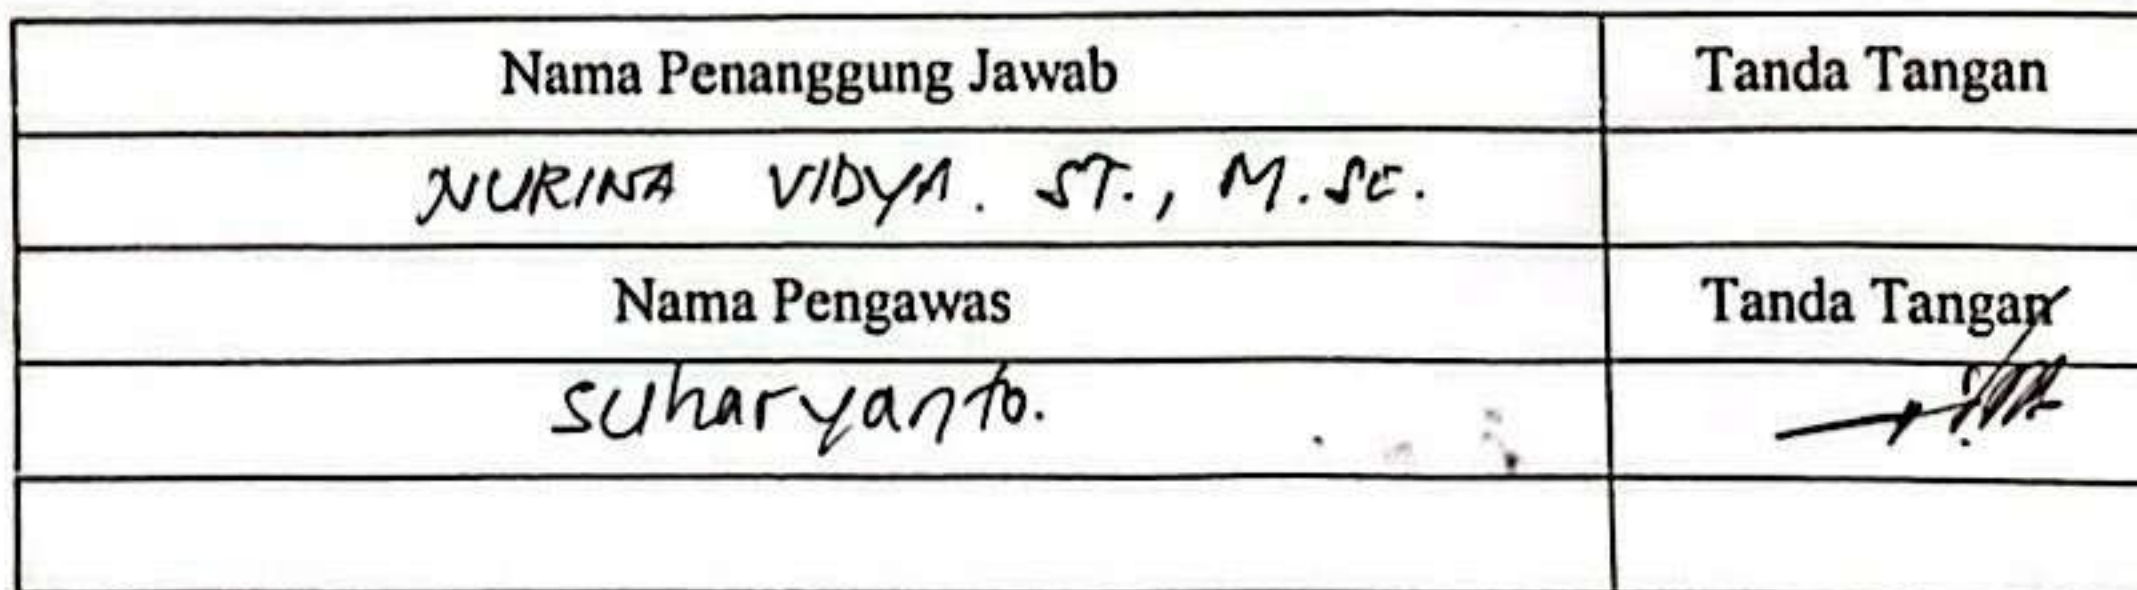 Nama Penanggung Jawab Tanda Tangan
NURINA VIDYA. ST., M.Sc.
Nama Pengawas Tanda Tangan
Suharyanto.